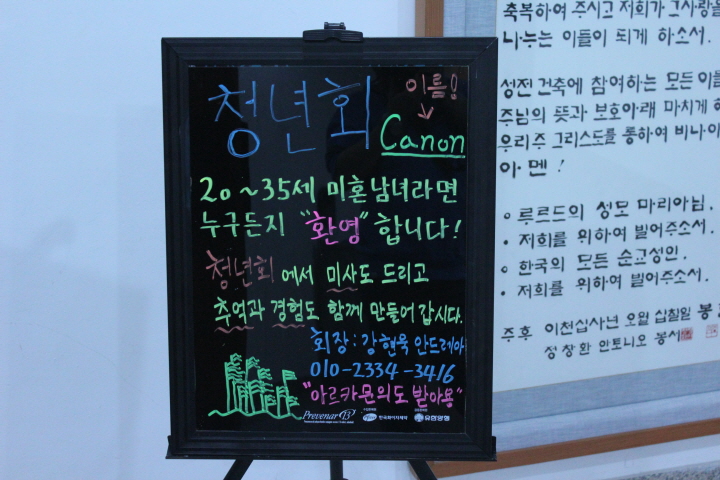 청년회
이름!
→
Canon
20~35세 미혼남녀라면
누구든지 "환영"합니다!
청년회에서 미사도 드리고
추억과 경험도 함께 만들어 갑시다.
회장 : 강현욱 안드레아
010-2334-3416
"아르카몬의도 받아용"
Prevenar 13
Pfizer 한국화이자제약
유한양행
축복하여 주시고 저희가 그 사랑을
나누는 이들이 되게 하소서.
성전 건축에 참여하는 모든 이들
주님의 뜻과 보호아래 마치게 하
우리주 그리스도를 통하여 비나이
아멘!
• 루르드의 성모 마리아님.
• 저희를 위하여 빌어주소서.
• 한국의 모든 순교성인.
• 저희를 위하여 빌어주소서.
주후 이천십사년 오월 십칠일 봉
정창환 안토니오 봉서